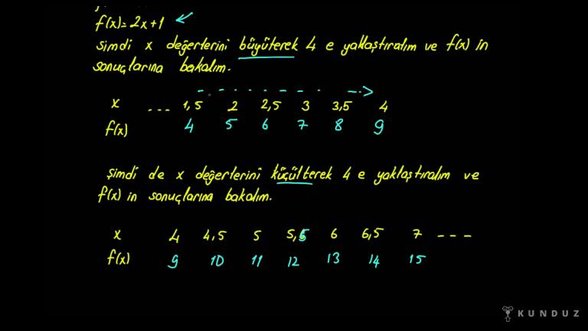 f(x)=2x+1
Şimdi x değerlerini büyüterek 4 e yaklaştıralım ve f(x) in
sonuçlarına bakalım.
x --- 1,5 2 2,5 3 3,5 4
f(x) 4 5 6 7 8 9
Şimdi de x değerlerini küçülterek 4 e yaklaştıralım ve
f(x) in sonuçlarına bakalım.
x 4 4,5 5 5,5 6 6,5 7 ---
f(x) 9 10 11 12 13 14 15
KUNDUZ